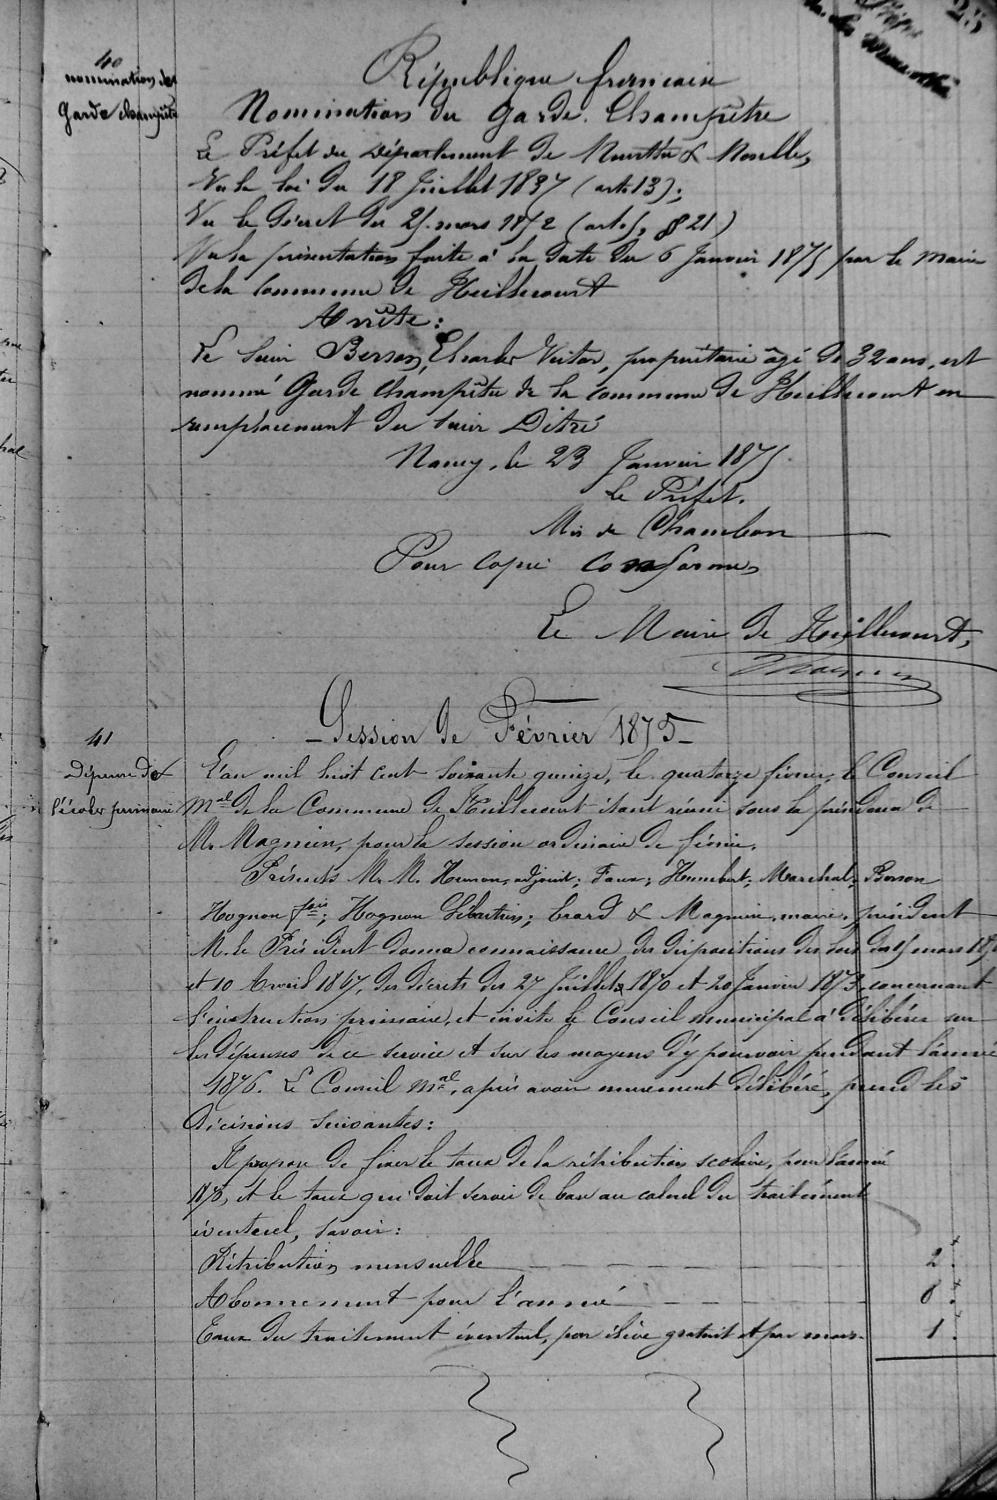 25
40
nomination du
Garde champêtre
République française
Nomination du Garde Champêtre
Le Préfet du Département de Meurthe & Moselle,
Vu la loi du 18 Juillet 1837 (art. 13);
Vu le décret du 25 mars 1852 (art. 5, § 21)
Vu la présentation faite à la date du 6 Janvier 1875 par le Maire
de la Commune de Heillecourt
Arrête:
Le Sieur Berson, Charles Victor, propriétaire âgé de 32 ans, est
nommé Garde Champêtre de la commune de Heillecourt en
remplacement du Sieur Ditré
Nancy, le 23 Janvier 1875.
Le Préfet.
Mis de Chambon
Pour copie conforme,
Le Maire de Heillecourt,
Magnien
Session de Février 1875
41
Dépense de
l'école primaire
L'an mil huit cent soixante quinze, le quatorze février, le Conseil
Mal de la Commune de Heillecourt étant réuni sous la présidence de
M. Magnien, pour la session ordinaire de février.
Présents M. M. Humon, adjoint; Faux; Humbert; Marchal; Berson
Hognon fois; Hognon Sébastien; Erard & Magnien, maire, président
M. le Président donna connaissance des dispositions des lois du 15 mars 1850
et 10 Avril 1867, des décrets des 27 Juillet 1870 et 20 Janvier 1873, concernant
l'instruction primaire, et invite le Conseil municipal à délibérer sur
les dépenses de ce service et sur les moyens d'y pourvoir pendant l'année
1876. Le Conseil Mal, après avoir murement délibéré, prend les
décisions suivantes:
Il propose de fixer le taux de la rétribution scolaire, pour l'année
1876, et le taux qui doit servir de base au calcul du traitement
éventuel, savoir:
Rétribution mensuelle 2 f.
Abonnement pour l'année 8 f.
Taux du traitement éventuel, par élève gratuit et par mois. 1 f.